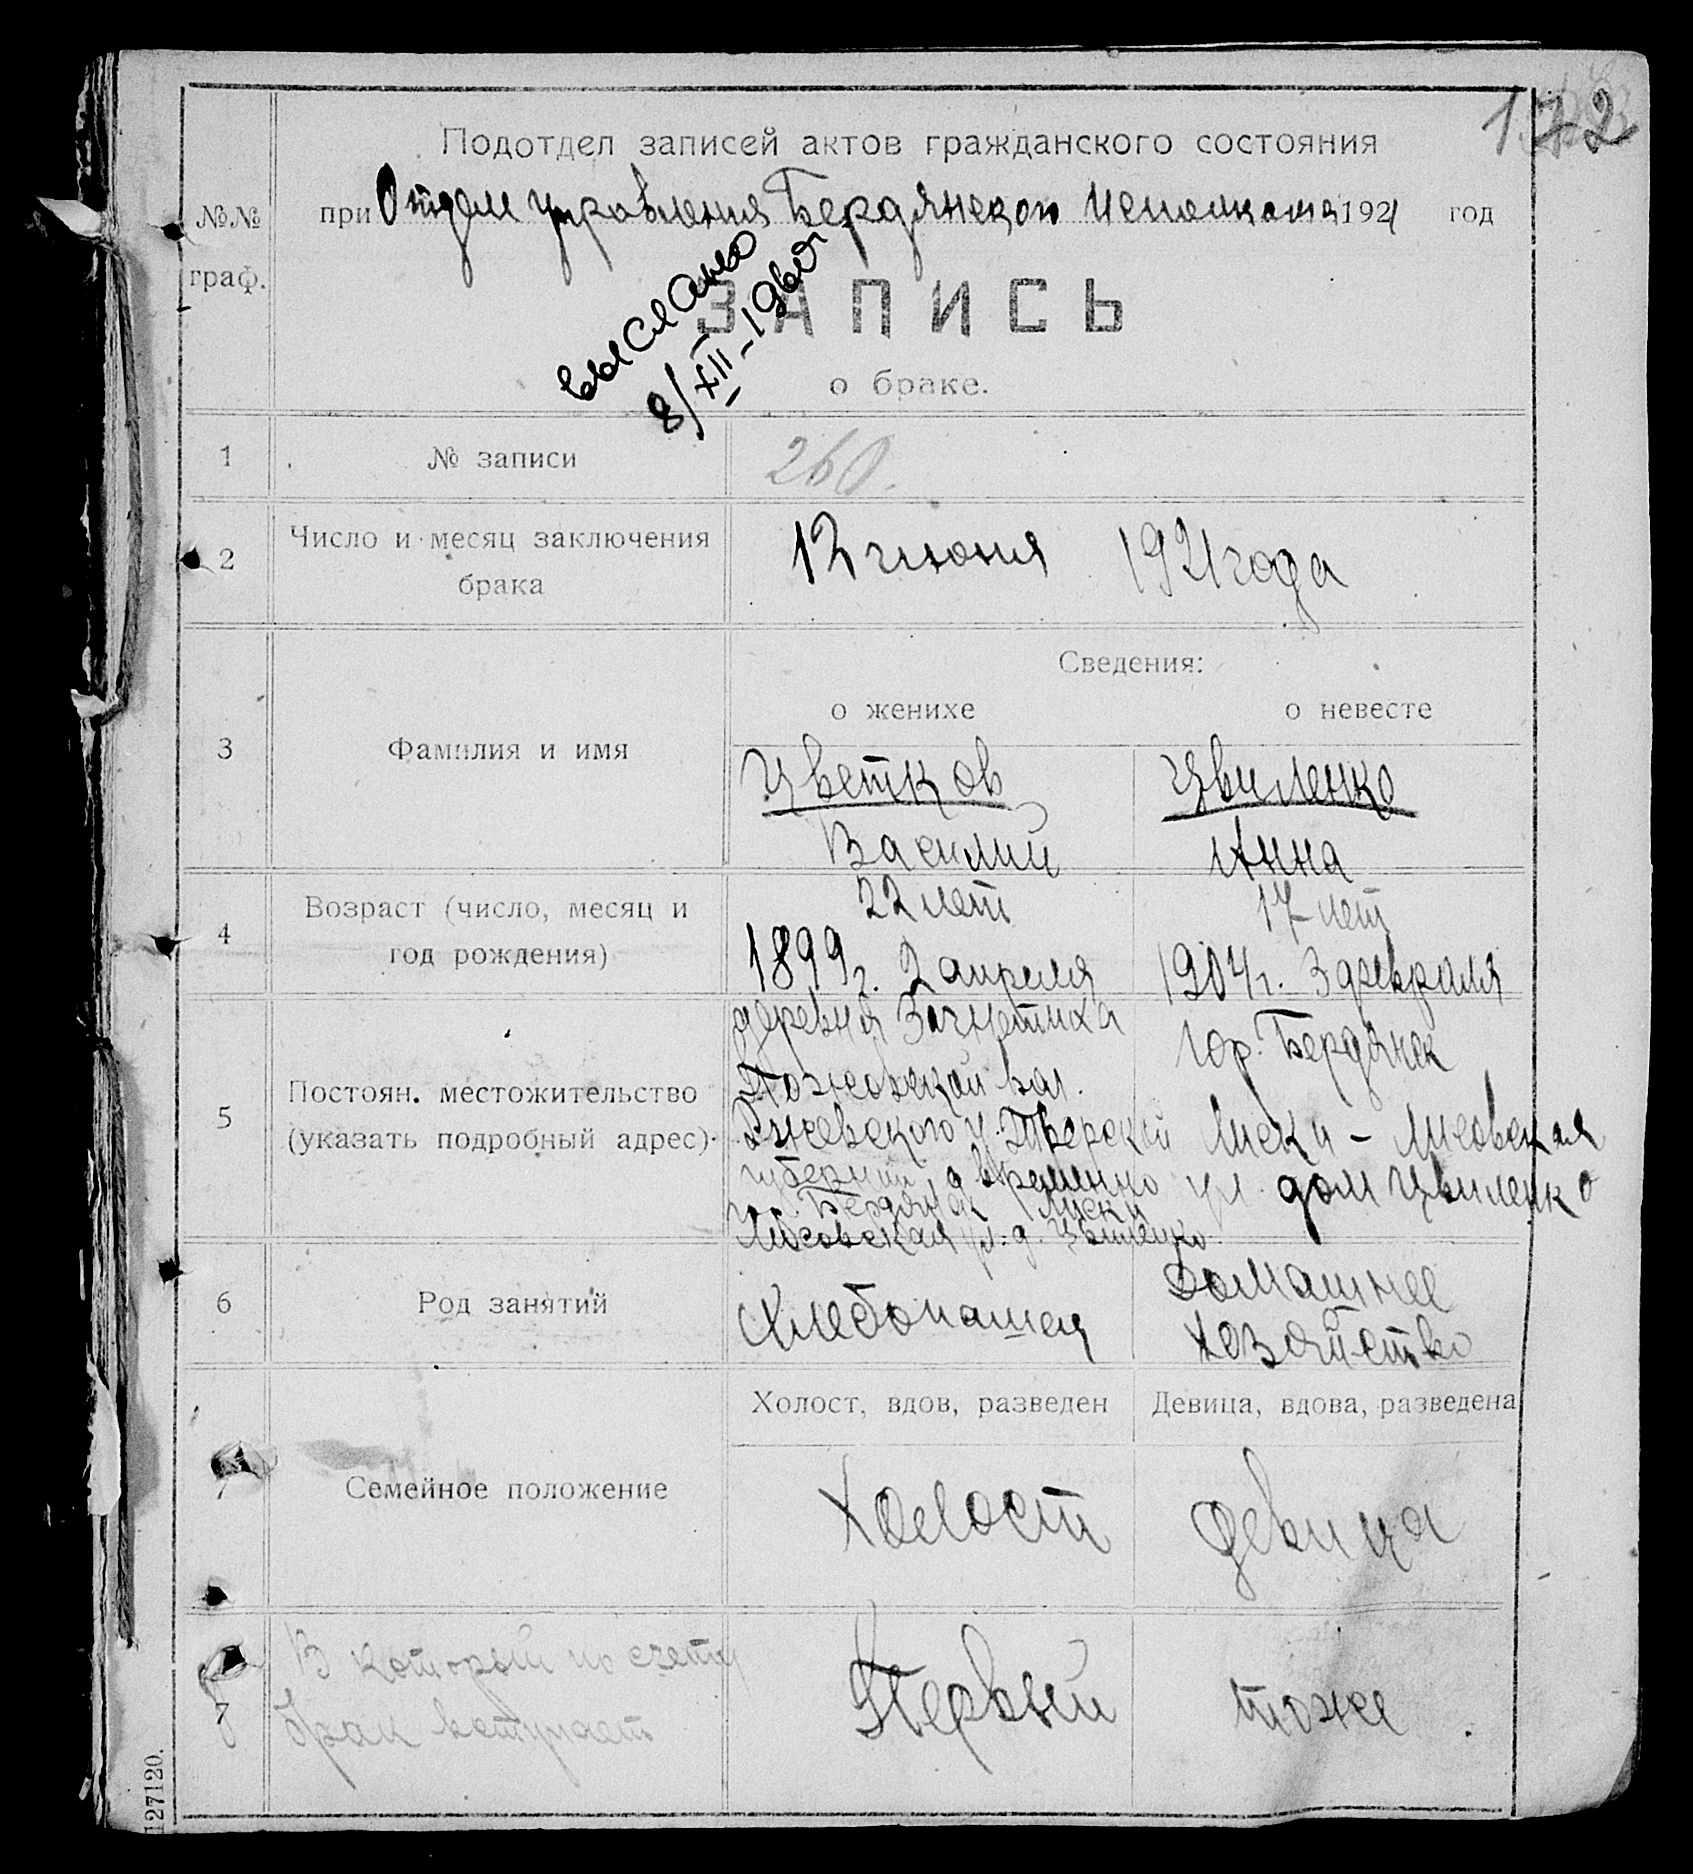 172
Подотдел записей актов гражданского состояния
№№ граф.
при Отделе управления Бердянского Исполкома 1921 год
выслано
8/XII-196
ЗАПИСЬ
о браке.
1 № записи 260.
2 Число и месяц заключения брака
12 июня 1921 года
Сведения:
о женихе о невесте
3 Фамилия и имя
Цветков Цвиленко
Василий Анна
4 Возраст (число, месяц и год рождения)
22 лет 17 лет
1899 г. 2 апреля 1904 г. 3 февраля
5 Постоян. местожительство (указать подробный адрес)
деревня
вол.
Ржевского у. Тверской
губернии, а временно
гор. Бердянск Лиски
Лисовская ул. д. Цвиленко
гор. Бердянск
Лиски - Лисовская
ул. дом Цвиленко
6 Род занятий
Хлебопашец
Домашнее
хозяйство
Холост, вдов, разведен Девица, вдова, разведена
7 Семейное положение
Холост девица
В который по счету
брак вступает
7
Первый тоже
127120.